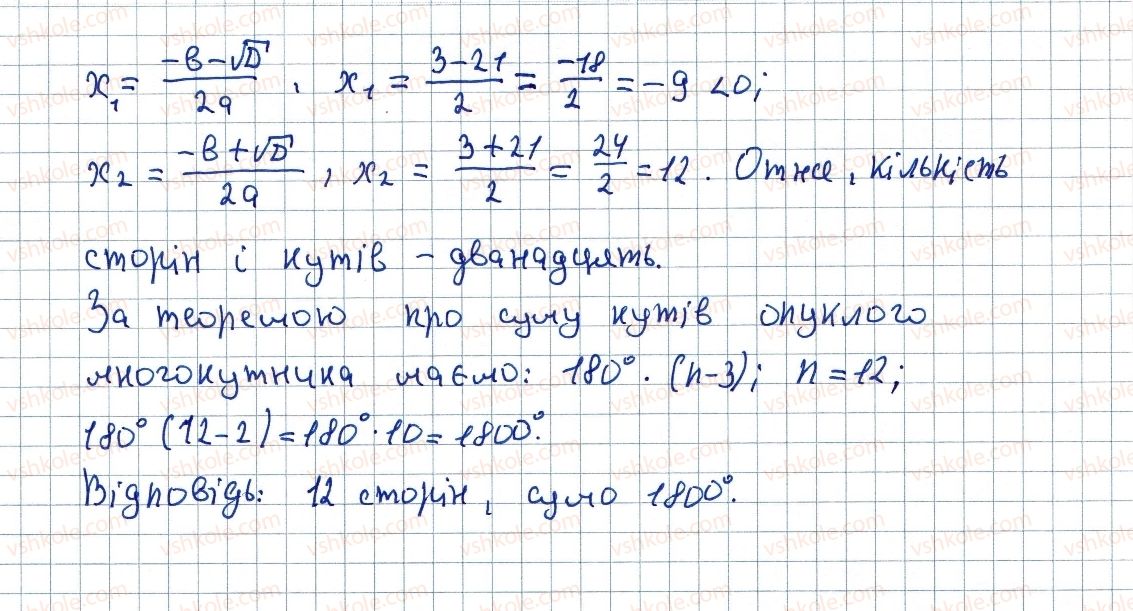 x₁ = (-b-√D)/2a, x₁ = (3-21)/2 = -18/2 = -9 < 0;
x₂ = (-b+√D)/2a, x₂ = (3+21)/2 = 24/2 = 12. Отже, кількість
сторін і кутів – дванадцять.
За теоремою про суму кутів опуклого
многокутника маємо: 180° · (n-3); n = 12;
180° (12-2) = 180° · 10 = 1800°.
Відповідь: 12 сторін, сумо 1800°.